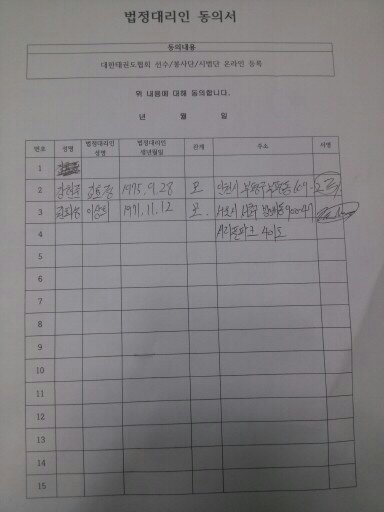 법정대리인 동의서
동의내용
대한태권도협회 선수/봉사단/시범단 온라인 등록
위 내용에 대해 동의합니다.
년 월 일
번호 성명 법정대리인 성명 법정대리인 생년월일 관계 주소 서명
1
2 1975.9.28 모 인천시 부평구 부평동
3 1971.11.12 모.
4
5
6
7
8
9
10
11
12
13
14
15